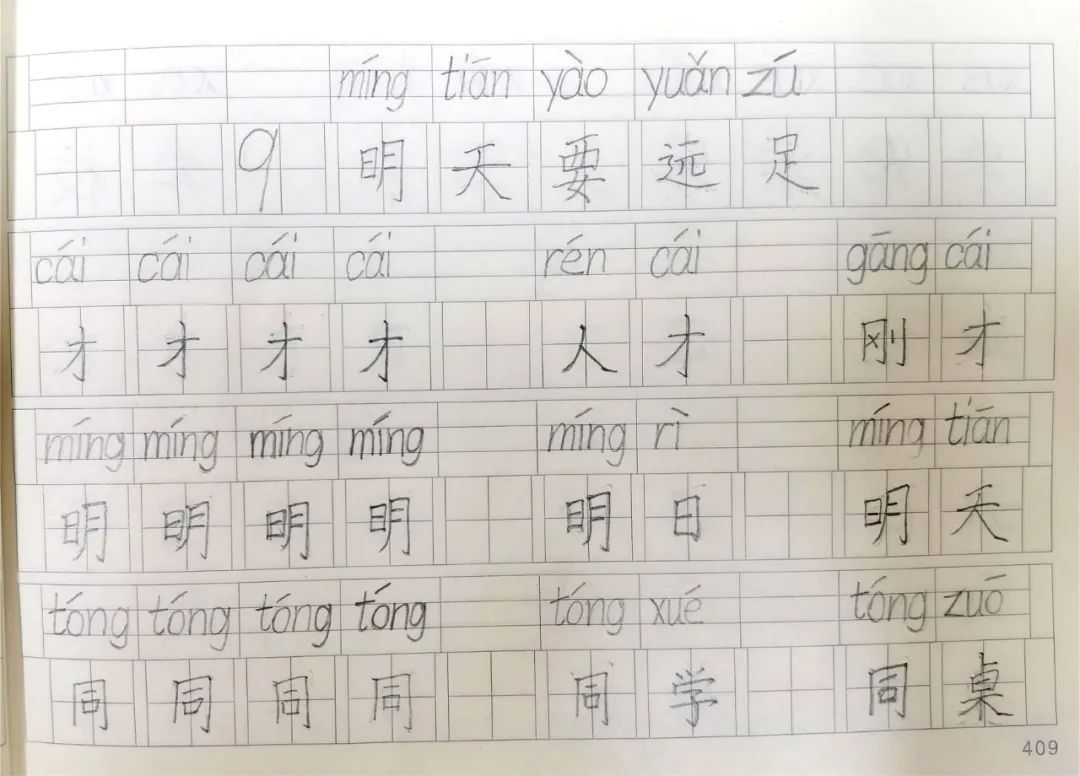 míng tiān yào yuǎn zú
9 明 天 要 远 足
cái cái cái cái rén cái gāng cái
才 才 才 才 人 才 刚 才
míng míng míng míng míng rì míng tiān
明 明 明 明 明 日 明 天
tóng tóng tóng tóng tóng xué tóng zuō
同 同 同 同 同 学 同 桌
409